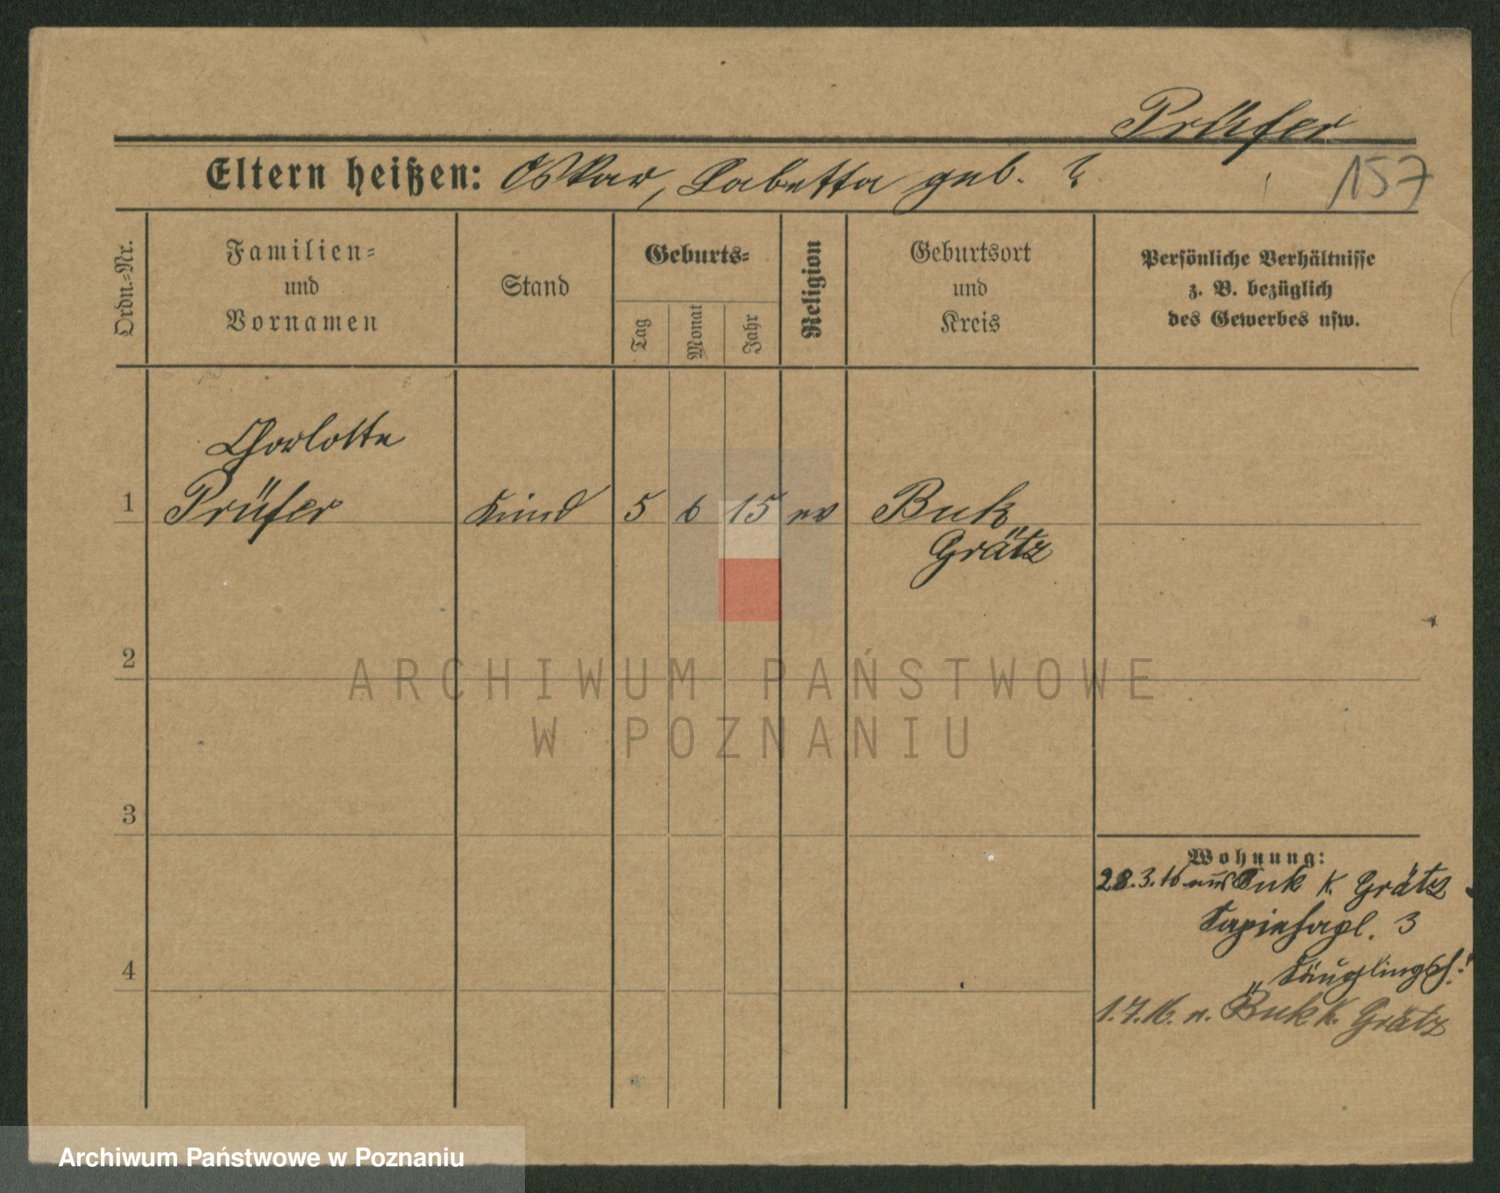 Prüfer
157
Eltern heißen: Oskar, Babetta geb. ?
Ordn.-Nr.
Familien-
und
Vornamen
Stand
Geburts-
Tag
Monat
Jahr
Religion
Geburtsort
und
Kreis
Persönliche Verhältnisse
z. B. bezüglich
des Gewerbes usw.
Charlotte
1 Prüfer Kind 5 6 15 ev Buk
Grätz
2
3
4
Wohnung:
28.3.16 aus Buk K. Grätz
Sapiehapl. 3
Säuglingsh.
1.7.16. n. Buk K. Grätz
ARCHIWUM PAŃSTWOWE
W POZNANIU
Archiwum Państwowe w Poznaniu